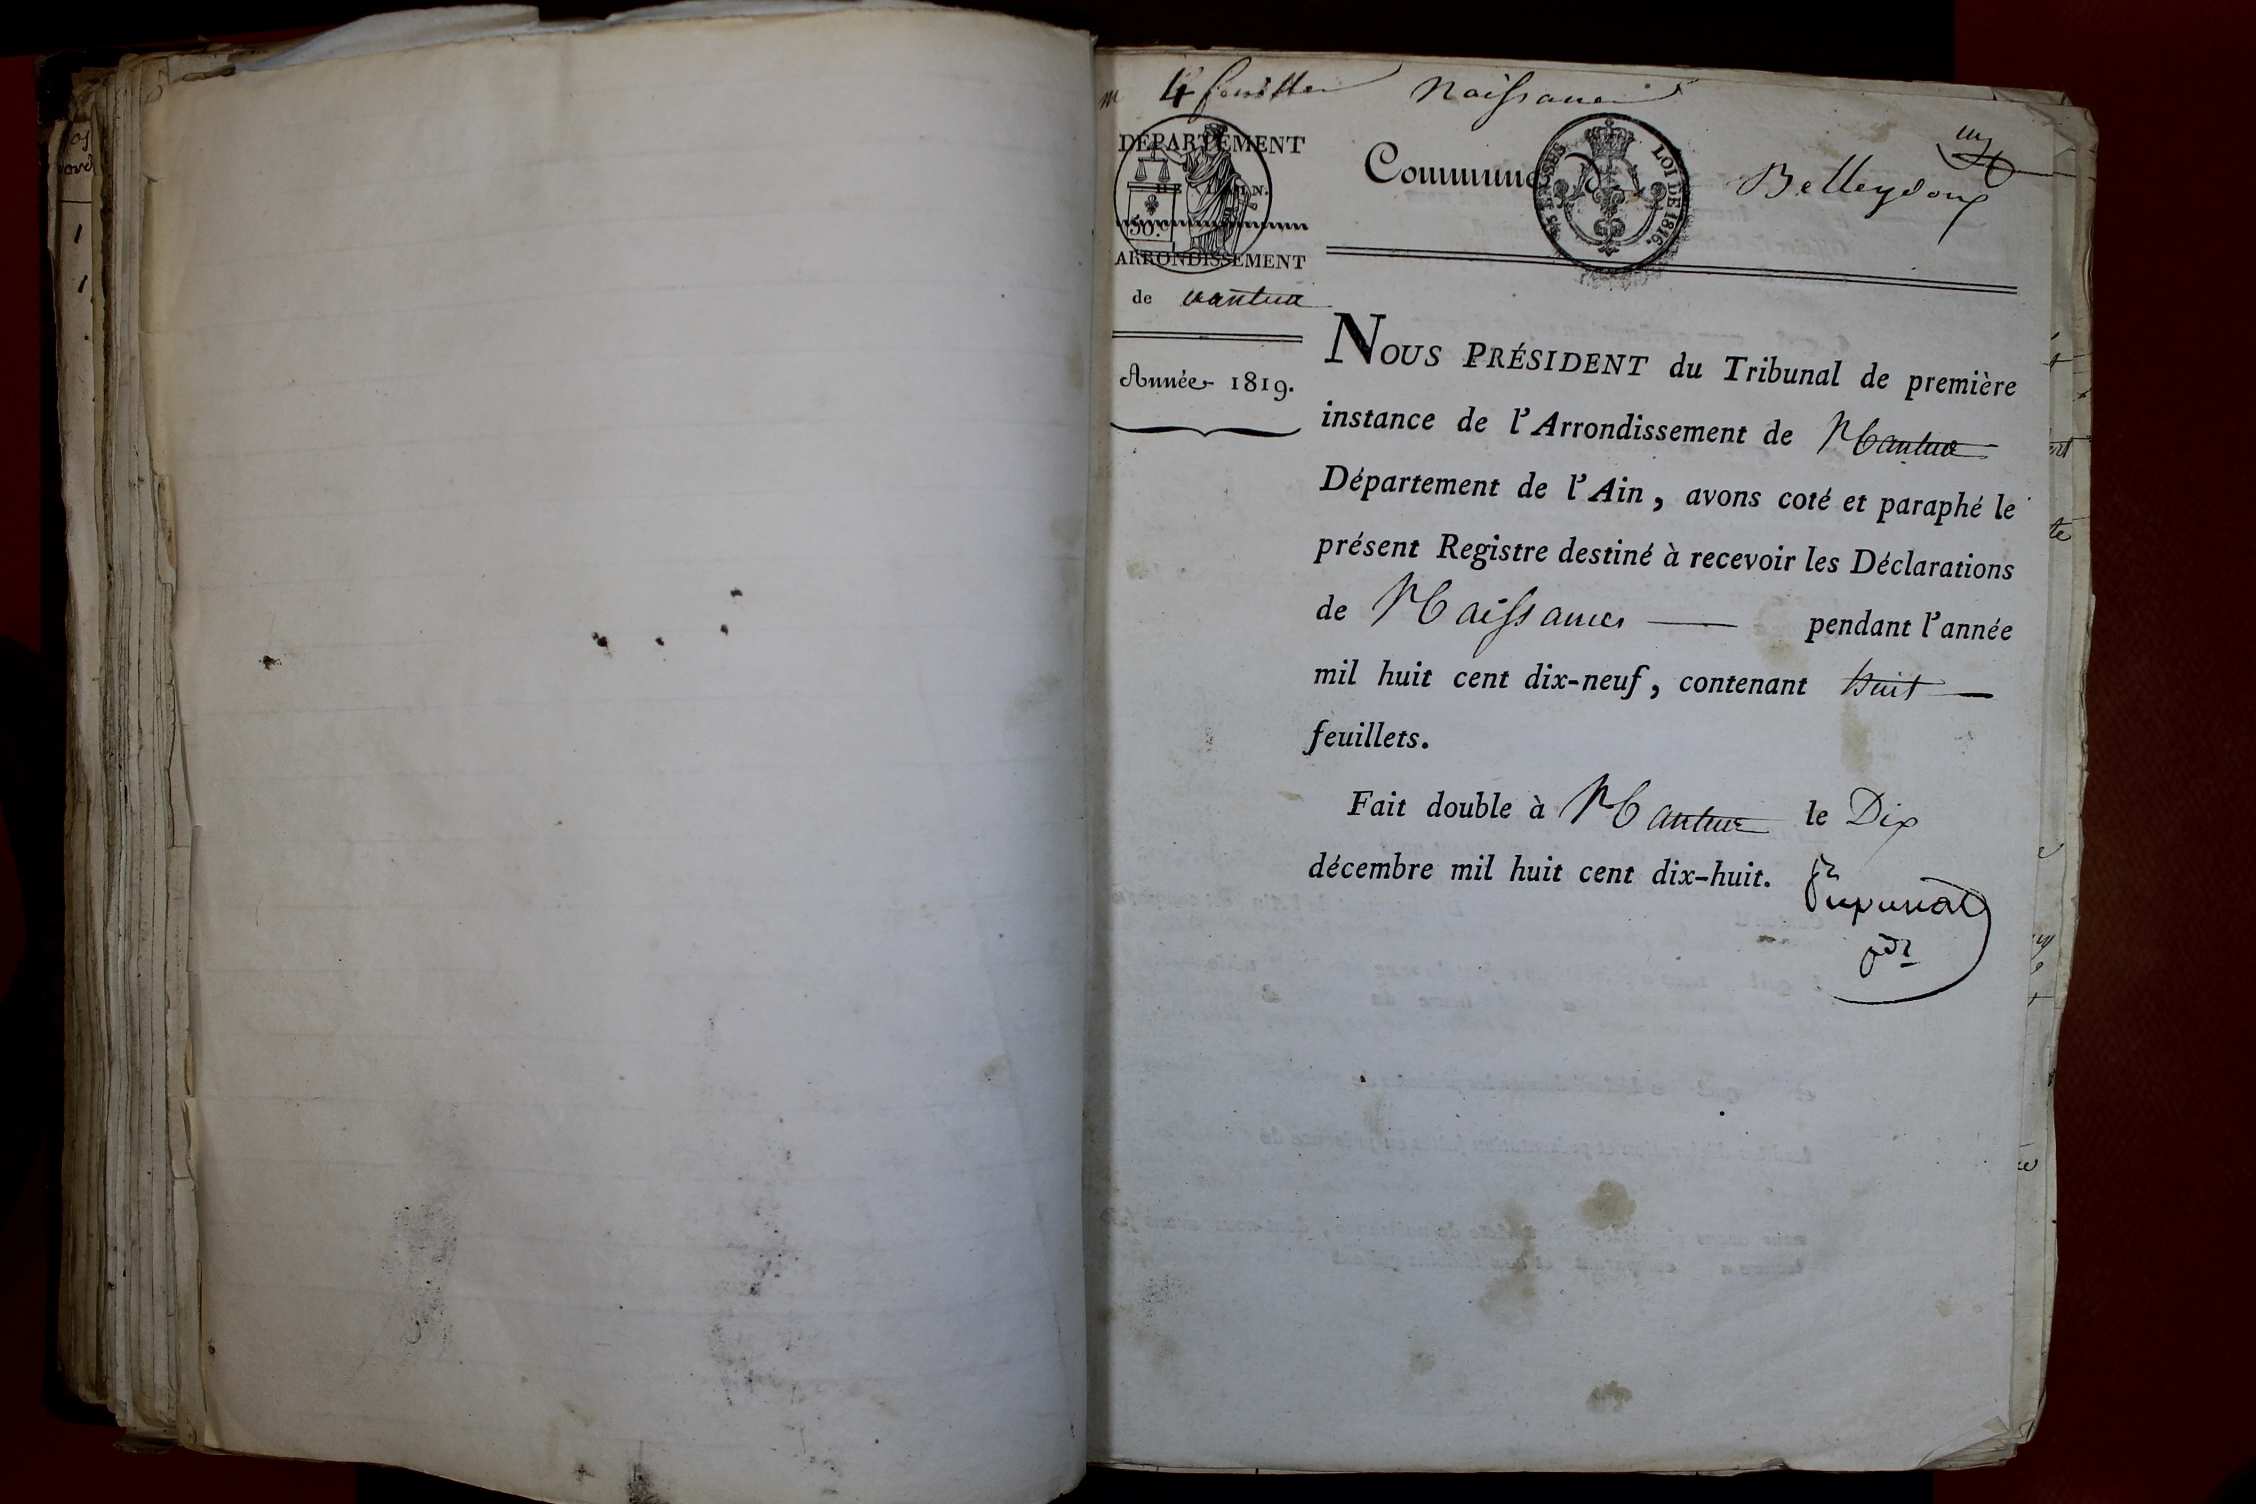 4 feuilles Naissances
DÉPARTEMENT
DE L'AIN.
50.c
ARRONDISSEMENT
de Nantua
Année 1819.
Commune de Belleydoux
25 EN SUS
LOI DE 1816.
NOUS PRÉSIDENT du Tribunal de première
instance de l'Arrondissement de Nantua
Département de l'Ain, avons coté et paraphé le
présent Registre destiné à recevoir les Déclarations
de Naissances — pendant l'année
mil huit cent dix-neuf, contenant huit —
feuillets.
Fait double à Nantua le Dix
décembre mil huit cent dix-huit.